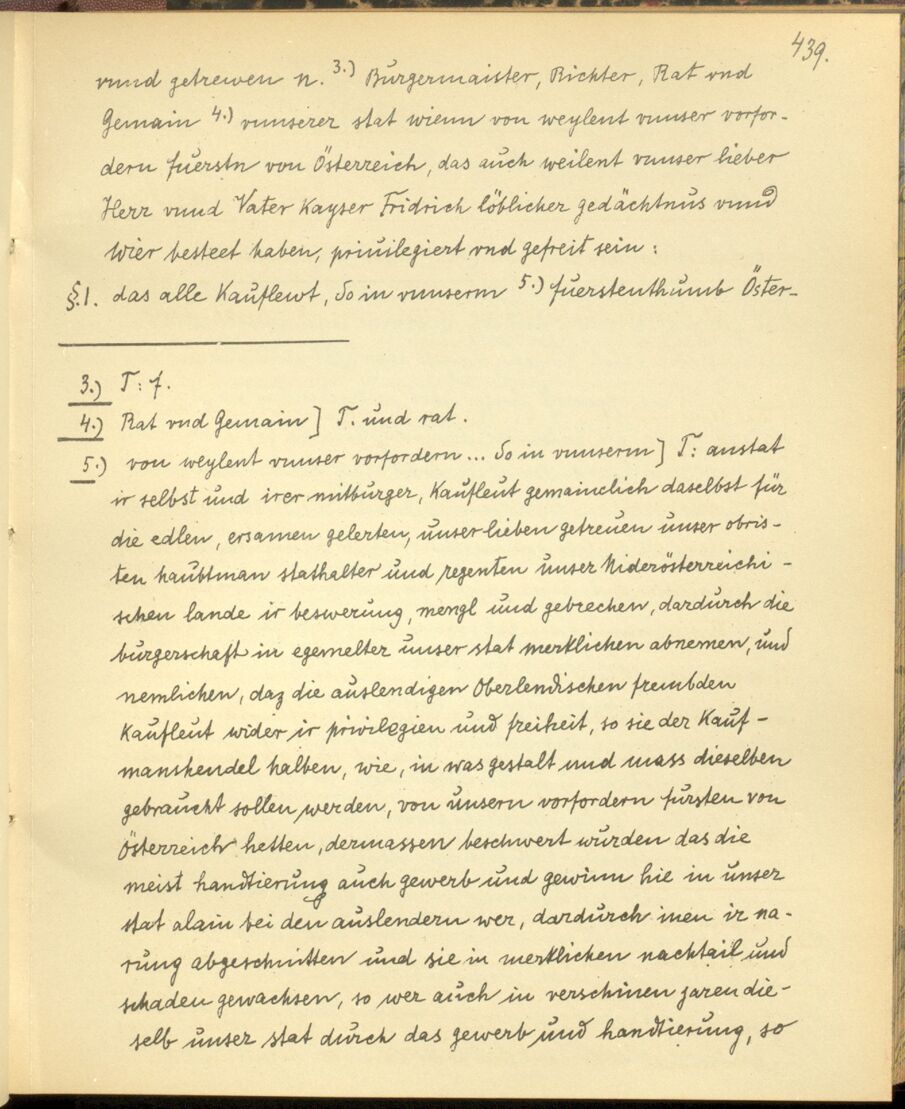 439.
vnnd getrewen N. 3.) Burgermaister, Richter, Rat vnd
Gemain 4.) vnnserer stat wienn von weylent vnnser vorfor-
dern fuerstn von Österreich, das auch weilent vnnser lieber
Herr vnnd Vater Kayser Fridrich löblicher gedächtnus vnnd
Wier besteet haben, priuilegiert vnd gefreit sein:
§.1. das alle Kauflewt, So in vnnserm 5.) fuerstenthumb Öster-
3.) T: f.
4.) Rat vnd Gemain] T. und rat.
5.) von weylent vnnser vorfordern... So in vnnserm] T: anstat
ir selbst und irer mitburger, Kaufleut gemainclich daselbst für
die edlen, ersamen gelerten, unser lieben getreuen unser obris-
ten haubtman stathalter und regenten unser Niderösterreichi-
schen lande ir beswerung, mengl und gebrechen, dardurch die
burgerschaft in egemelter unser stat merklichen abnemen, und
nemlichen, daz die auslendigen Oberlendischen frembden
Kaufleut wider ir privilegien und freiheit, so sie der Kauf-
manshendel halben, wie, in was gestalt und mass dieselben
gebraucht sollen werden, von unsern vorfordern fursten von
Österreich hetten, dermassen beschwert wurden das die
meist handtierung auch gewerb und gewinn hie in unser
stat alain bei den auslendern wer, dardurch inen ir na-
rung abgeschnitten und sie in merklichen nachtail und
schaden gewachsen, so wer auch in verschinen jaren die-
selb unser stat durch das gewerb und handtierung, so